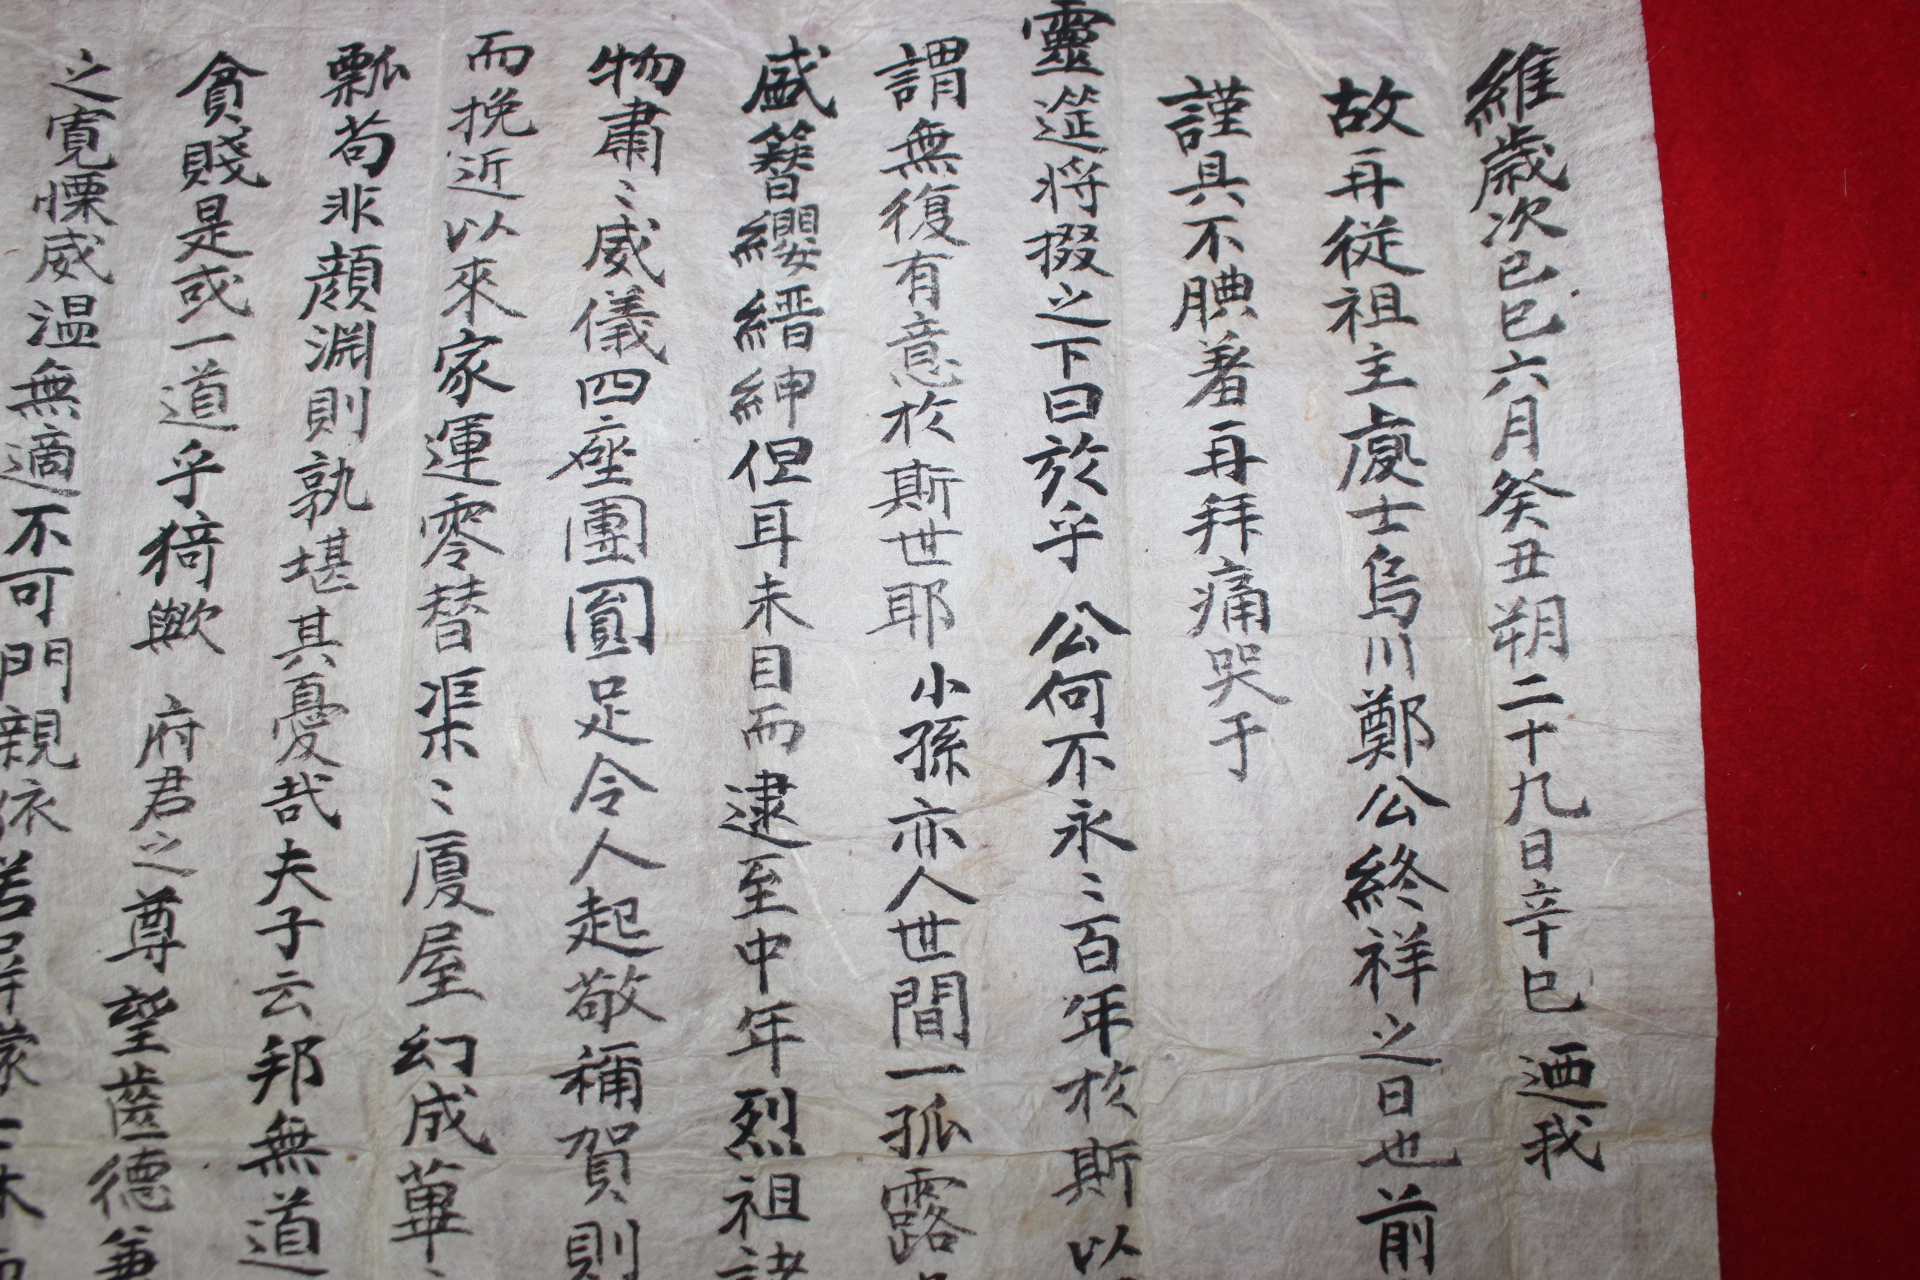 維歲次己巳六月癸丑朔二十九日辛巳迺我
故再從祖主處士烏川鄭公終祥之日也前
謹具不腆著再拜痛哭于
靈筵將掇之下曰於乎 公何不永〻百年於斯以
謂無復有意於斯世耶 小孫亦人世間一孤露
盛簪纓縉紳但耳未目而逮至中年烈祖諸
物肅〻威儀四座團圓足令人起敬稱賀則
而挽近以來家運零替渠〻廈屋幻成蓽
瓢苟非顔淵則孰堪其憂哉夫子云邦無道
貧賤是或一道乎猗歟 府君之尊望齒德兼
之寬慄威温無適不可門親依